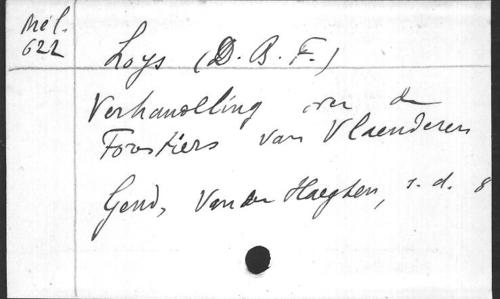 Mél.
622
Loys (D. B. F.)
Verhandeling over de
Foostiers van Vlaenderen
Gend, Vander Haeghen, s. d. 8